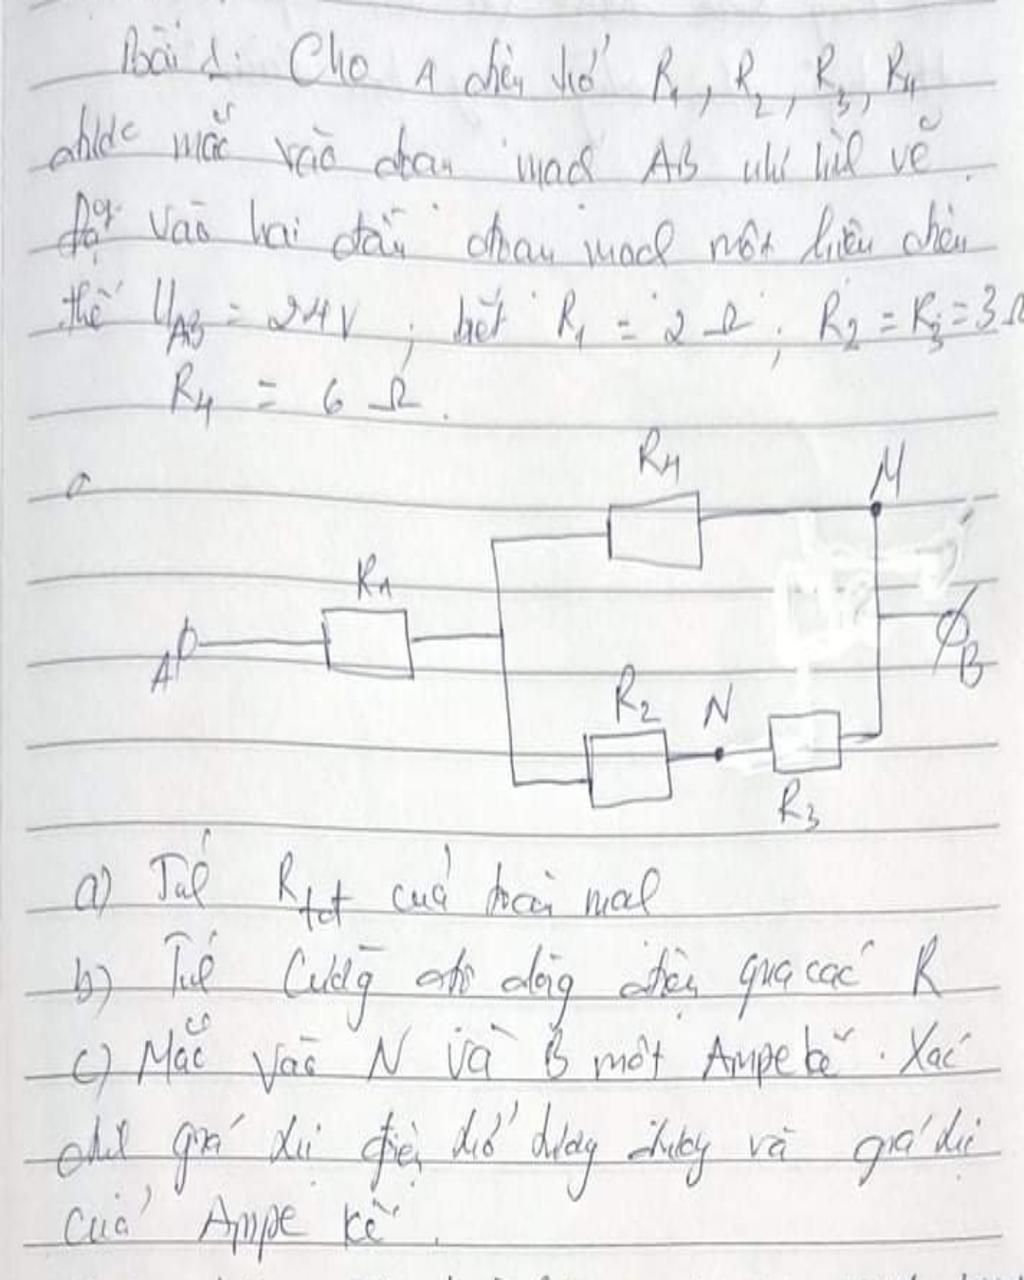 Bài 1: Cho 4 điện trở R1, R2, R3, R4
được mắc vào đoạn mạch AB như hình vẽ.
Đặt vào hai đầu đoạn mạch một hiệu điện
thế UAB = 24V; biết R1 = 2 Ω; R2 = R3 = 3 Ω
R4 = 6 Ω.
R4 M
R1
A B
R2 N
R3
a) Tính Rtđ của toàn mạch
b) Tính Cường độ dòng điện qua các R
c) Mắc vào N và B một Ampe kế. Xác
định giá trị điện trở tương đương và giá trị
của Ampe kế.